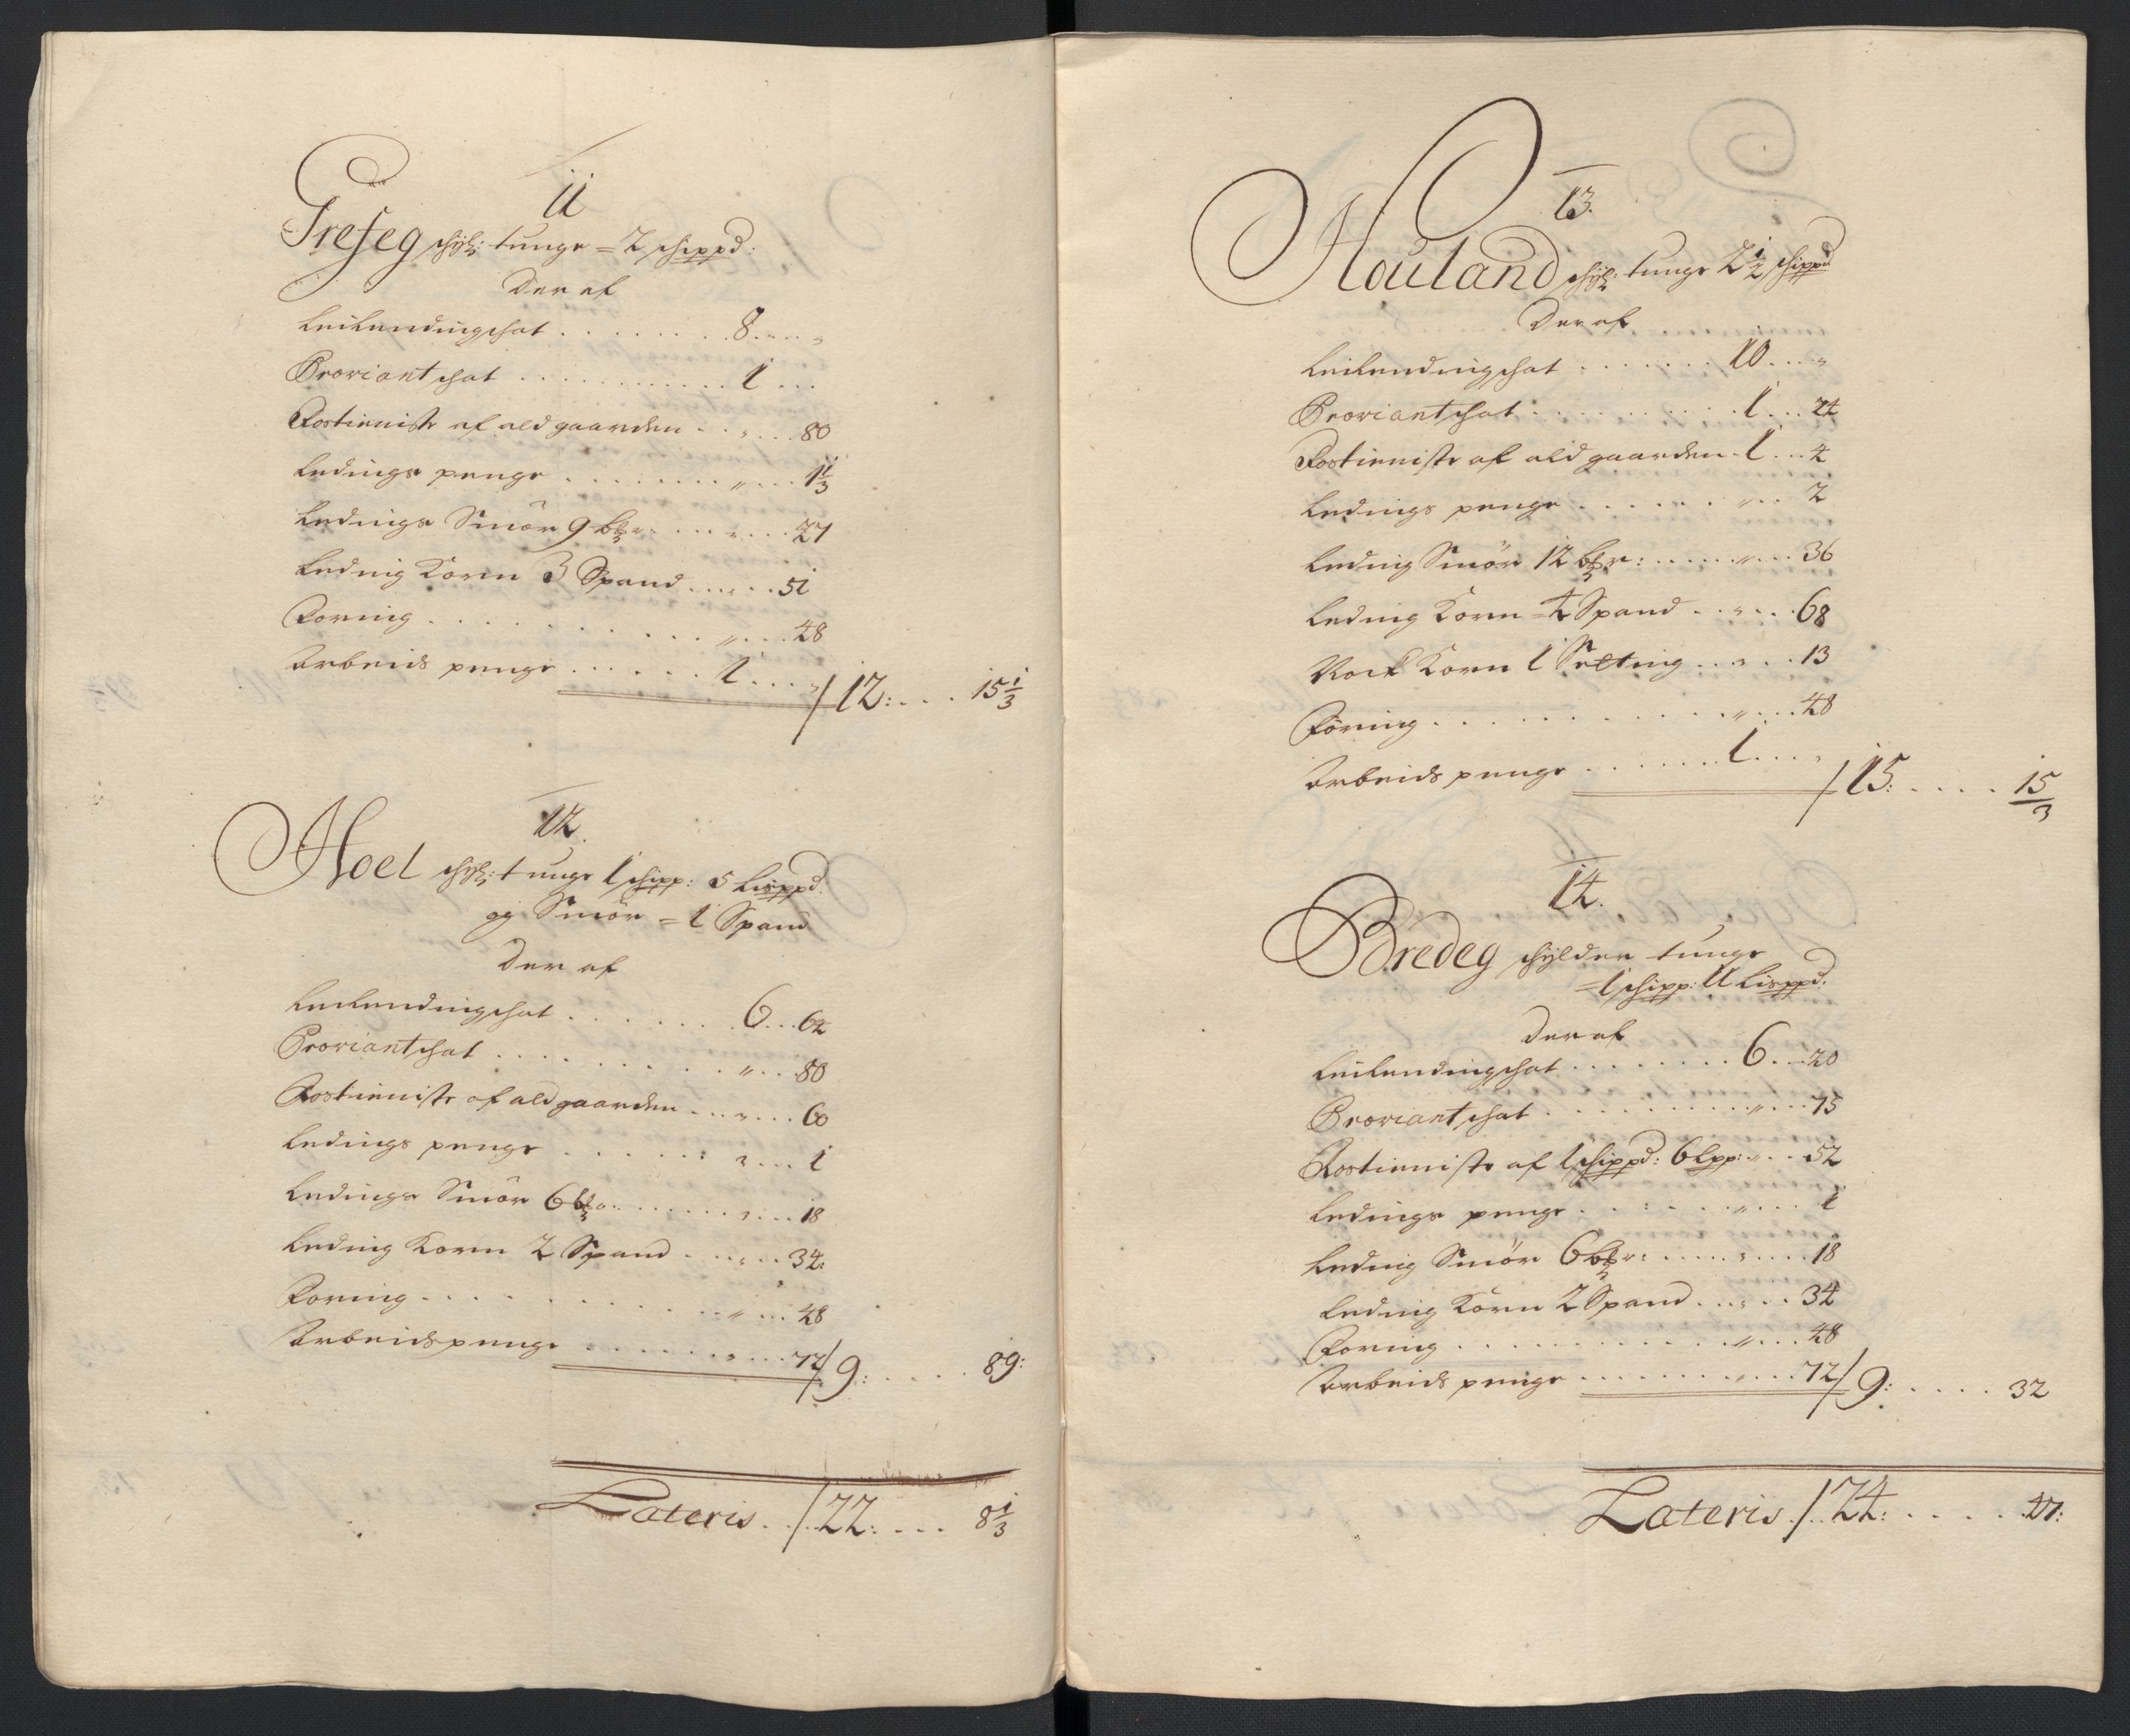 11
Grefseg schyl: tunge = 2 schippd:
Der af
Leilendingschat . . . . . . . 8 . . . „
Proviantschat . . . . . . . . . . . 1 . . .
Rostieniste af ald gaarden . . „ . . . 80
Ledings penge . . . . . . . . „ . . . 1 1/3
Ledings Smör 9 bpr: . . . „ . . . 27
Leding Korn 3 Spand . . „ . . 51
Foring . . . . . . . . . . . „ . . . 48
Arbeids penge . . . . . . 1 . . . „ / 12: . . . 15 1/3
12.
Hoel schyl: tunge 1 schipp: 5 Lisppd:
og Smör = 1 Spand
Der af
Leilendingschat . . . . . . . 6 . . 62
Proviantschat . . . . . . . . . „ . . . 80
Rostieniste af ald gaarden . . „ . . . 60
Ledings penge . . . . . . „ . . . 1
Ledings Smör 6 bpr: . . . . . . „ . . . 18
Leding Korn 2 Spand . . . „ . . 34:
Foring . . . . . . . . . . . „ . . . 48
Arbeids penge . . . . . . . „ . . . 72 / 9: . . . . 89:
Lateris . . / 22: . . . 8 1/3
13.
Houland schyl: tunge 2 1/2 schippd
Der af
Leilendingschat . . . . . . . 10 . . . „
Proviantschat . . . . . . . . . . 1 . . . 24
Rostieniste af ald gaarden . 1 . . . 4
Ledings penge . . . . . . . „ . . 2
Leding Smör 12 bpr: . . . . . „ . . . 36
Leding Korn = 4 Spand . . „ . . . 68
Korn 1 Setting . . „ . . . 13
Föring . . . . . . . . . . . „ . . . 48
Arbeids penge . . . . . . . 1 . . . „ / 15: . . . . 15/3
14.
Bredeg schylder tunge
= 1 schipp: 11 Lisppd.
Der af
Leilendingschat . . . . . . . . 6 . . . 20
Proviantschat . . . . . . . . . „ . . . 75
Rostieniste af 1 schippd: 6 Lpp: „ . . 52
Ledings penge . . . . . . . „ . . . 1
Leding Smör 6 bpr: . . . . . „ . . . . 18
Leding Korn 2 Spand . . „ . . . 34
Foring . . . . . . . . . . . „ . . . 48
Arbeids penge . . . . . . . . „ . . . 72 / 9: . . . . 32
Lateris . / . 24: . . . . . 47: